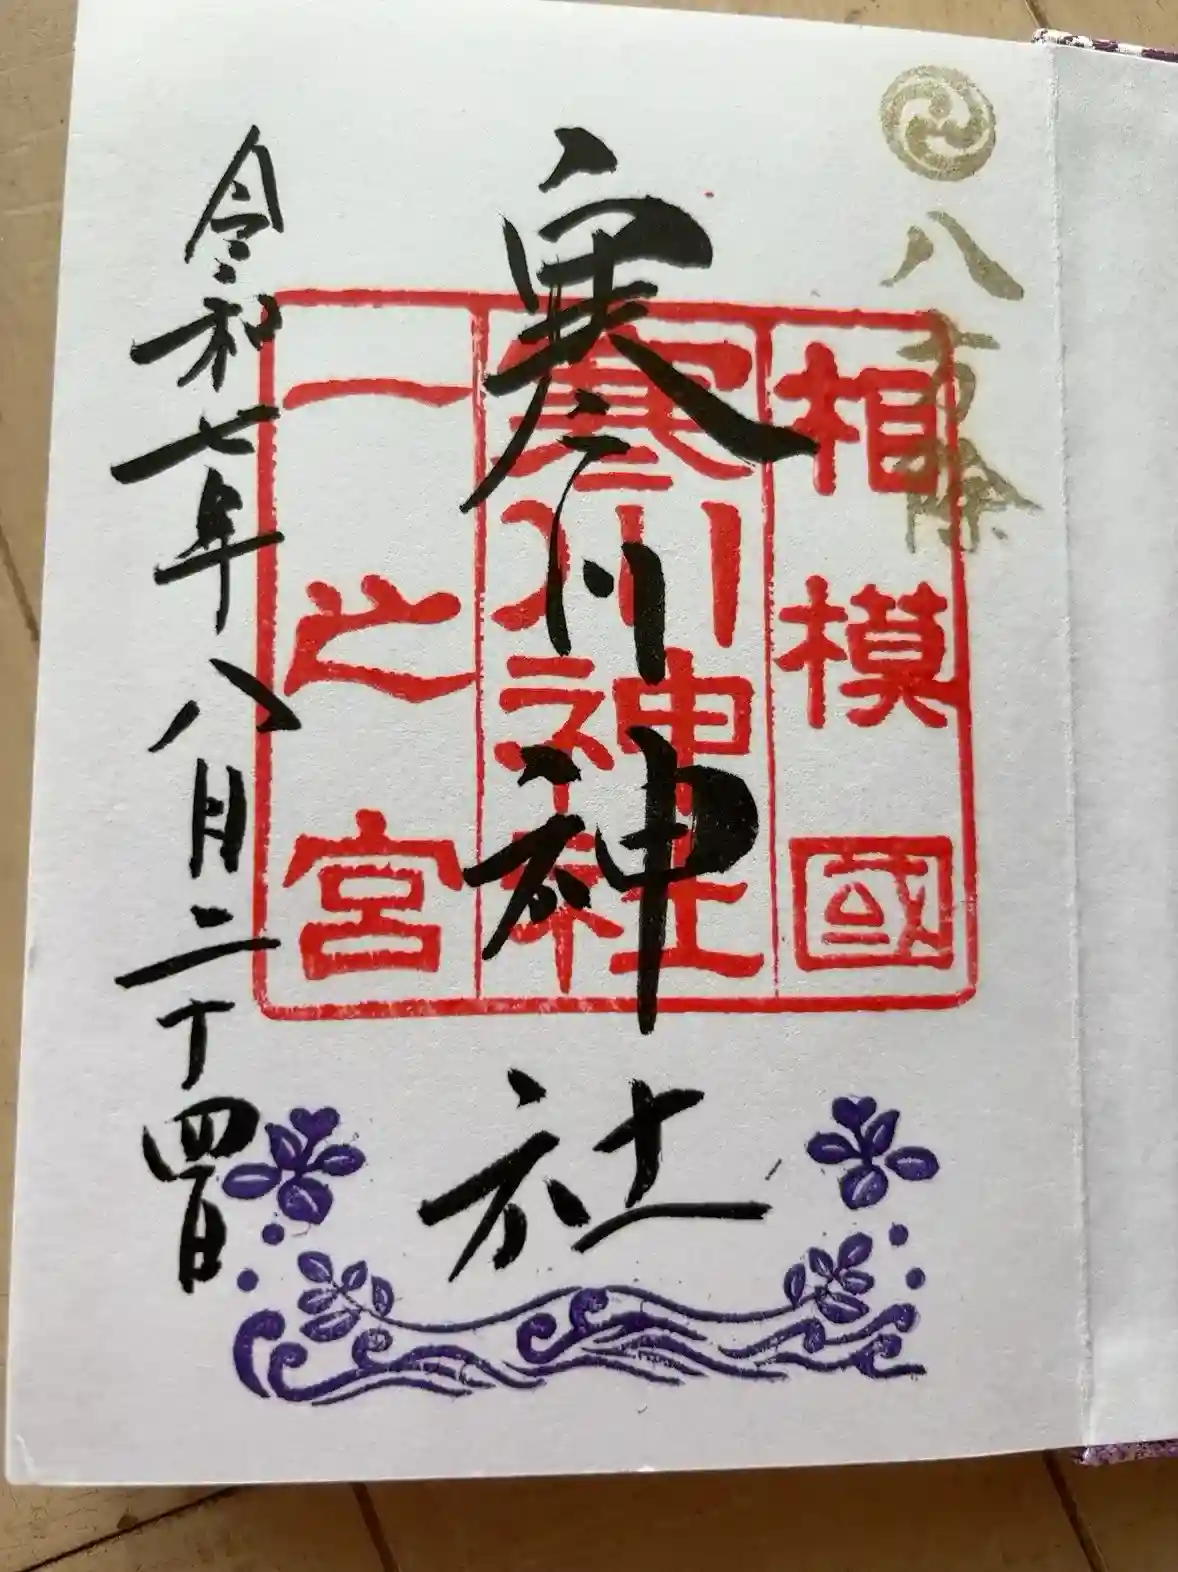 八方除
相模國
寒川神社
一之宮
寒川神社
令和七年八月二十四日